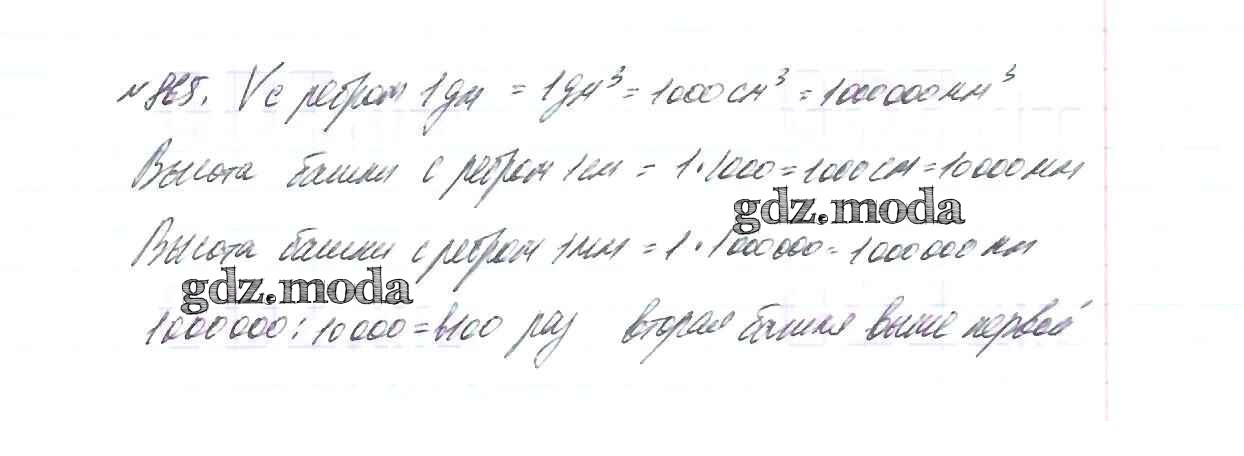 №865. V с ребром 1дм = 1дм³ = 1000см³ = 1000000мм³
Высота башни с ребром 1см = 1·1000 = 1000см = 10000мм
gdz.moda
Высота башни с ребром 1мм = 1·1000000 = 1000000мм
gdz.moda
1000000 : 10000 = в 100 раз вторая башня выше первой